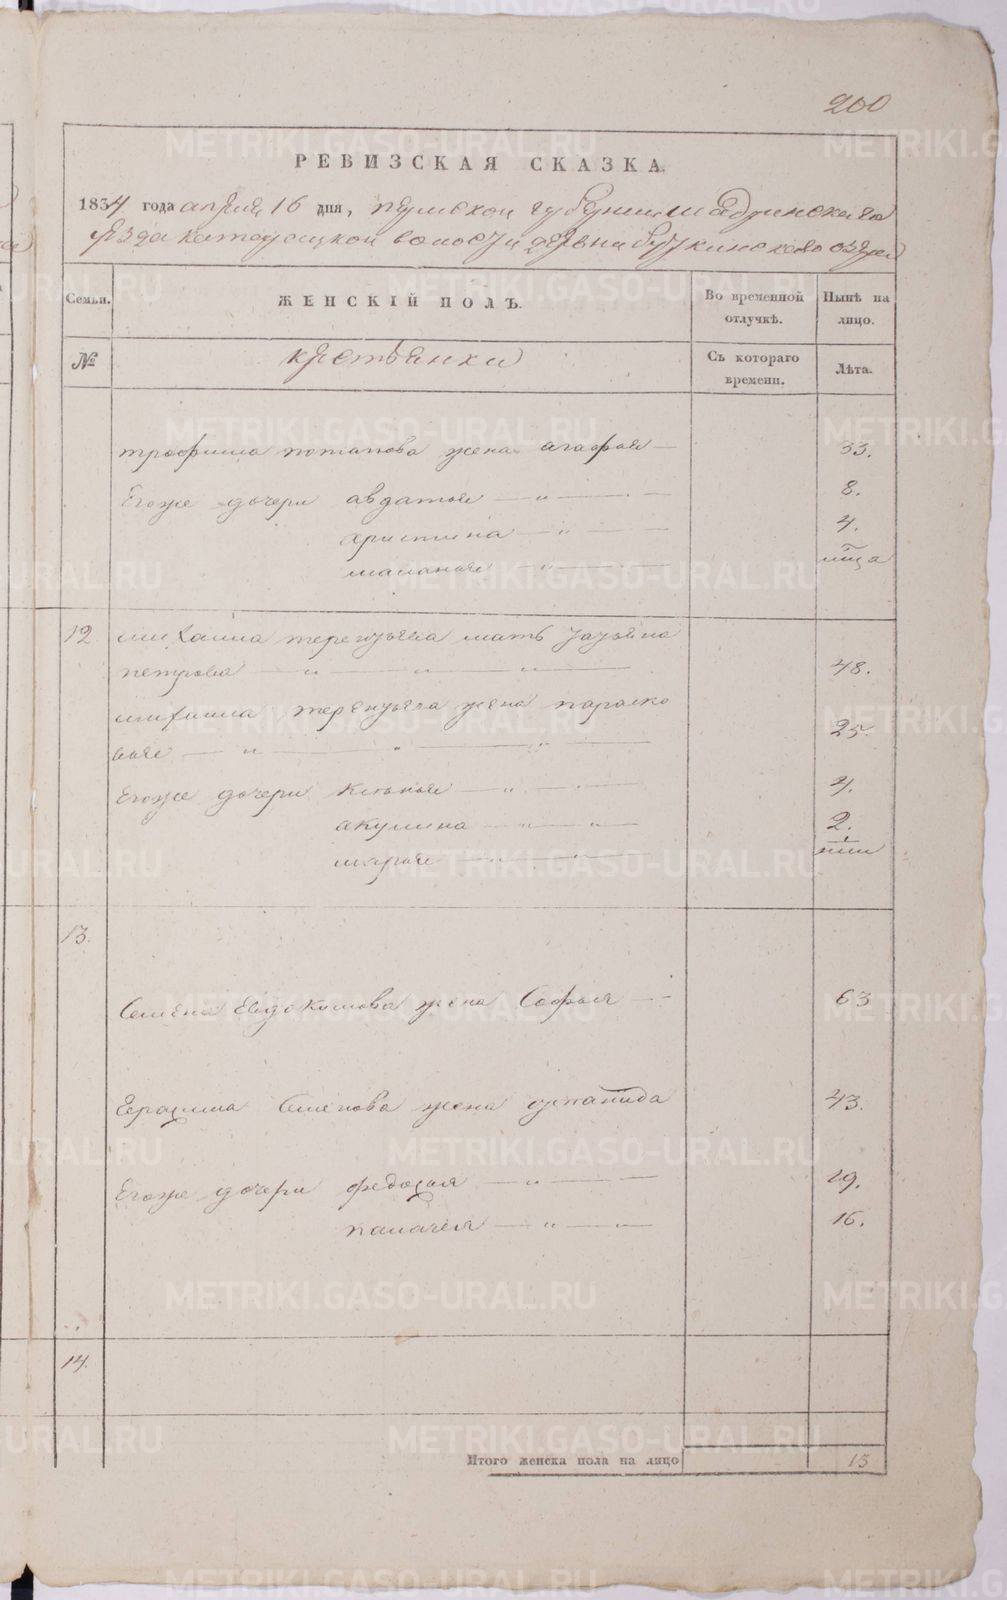 200
РЕВИЗСКАЯ СКАЗКА.
1834 года апреля 16 дня, пермской губернии шадринскаго
уезда деревни буткинскаго озера
Семьи. ЖЕНСКІЙ ПОЛЪ. Во временной отлучкѣ. Нынѣ на лицо.
№ крестьянки Съ котораго времени. Лѣта.
трофима потапова жена агафья 33.
Егоже дочери авдотья 8.
христина 4.
маланья
12 михаила терентьева мать
петрова 48.
михаила терентьева жена параско
вья 25.
Егоже дочери 4.
акулина 2.
марья
13.
Семена Евдокимова жена Софья 63
Герасима Семенова жена степанида 43.
Егоже дочери федосья 19.
палагея 16.
14.
Итого женска пола на лицо 13
METRIKI.GASO-URAL.RU